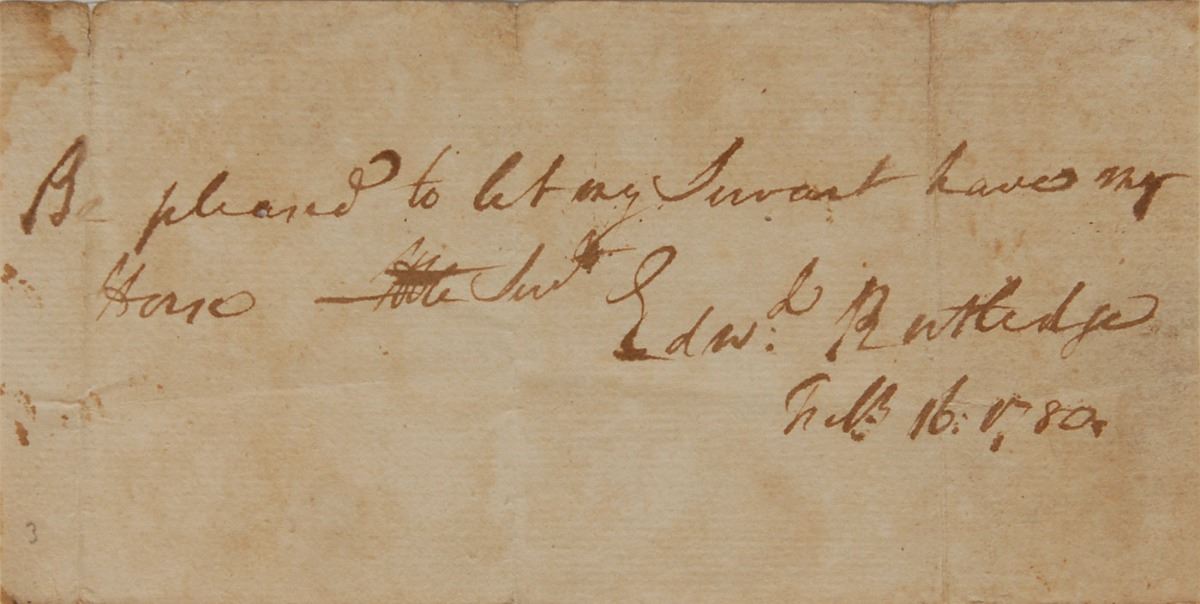 Be pleased to let my Servant have my
Horse — Servt
Edwd. Rutledge
Feb. 16: 1780.
3